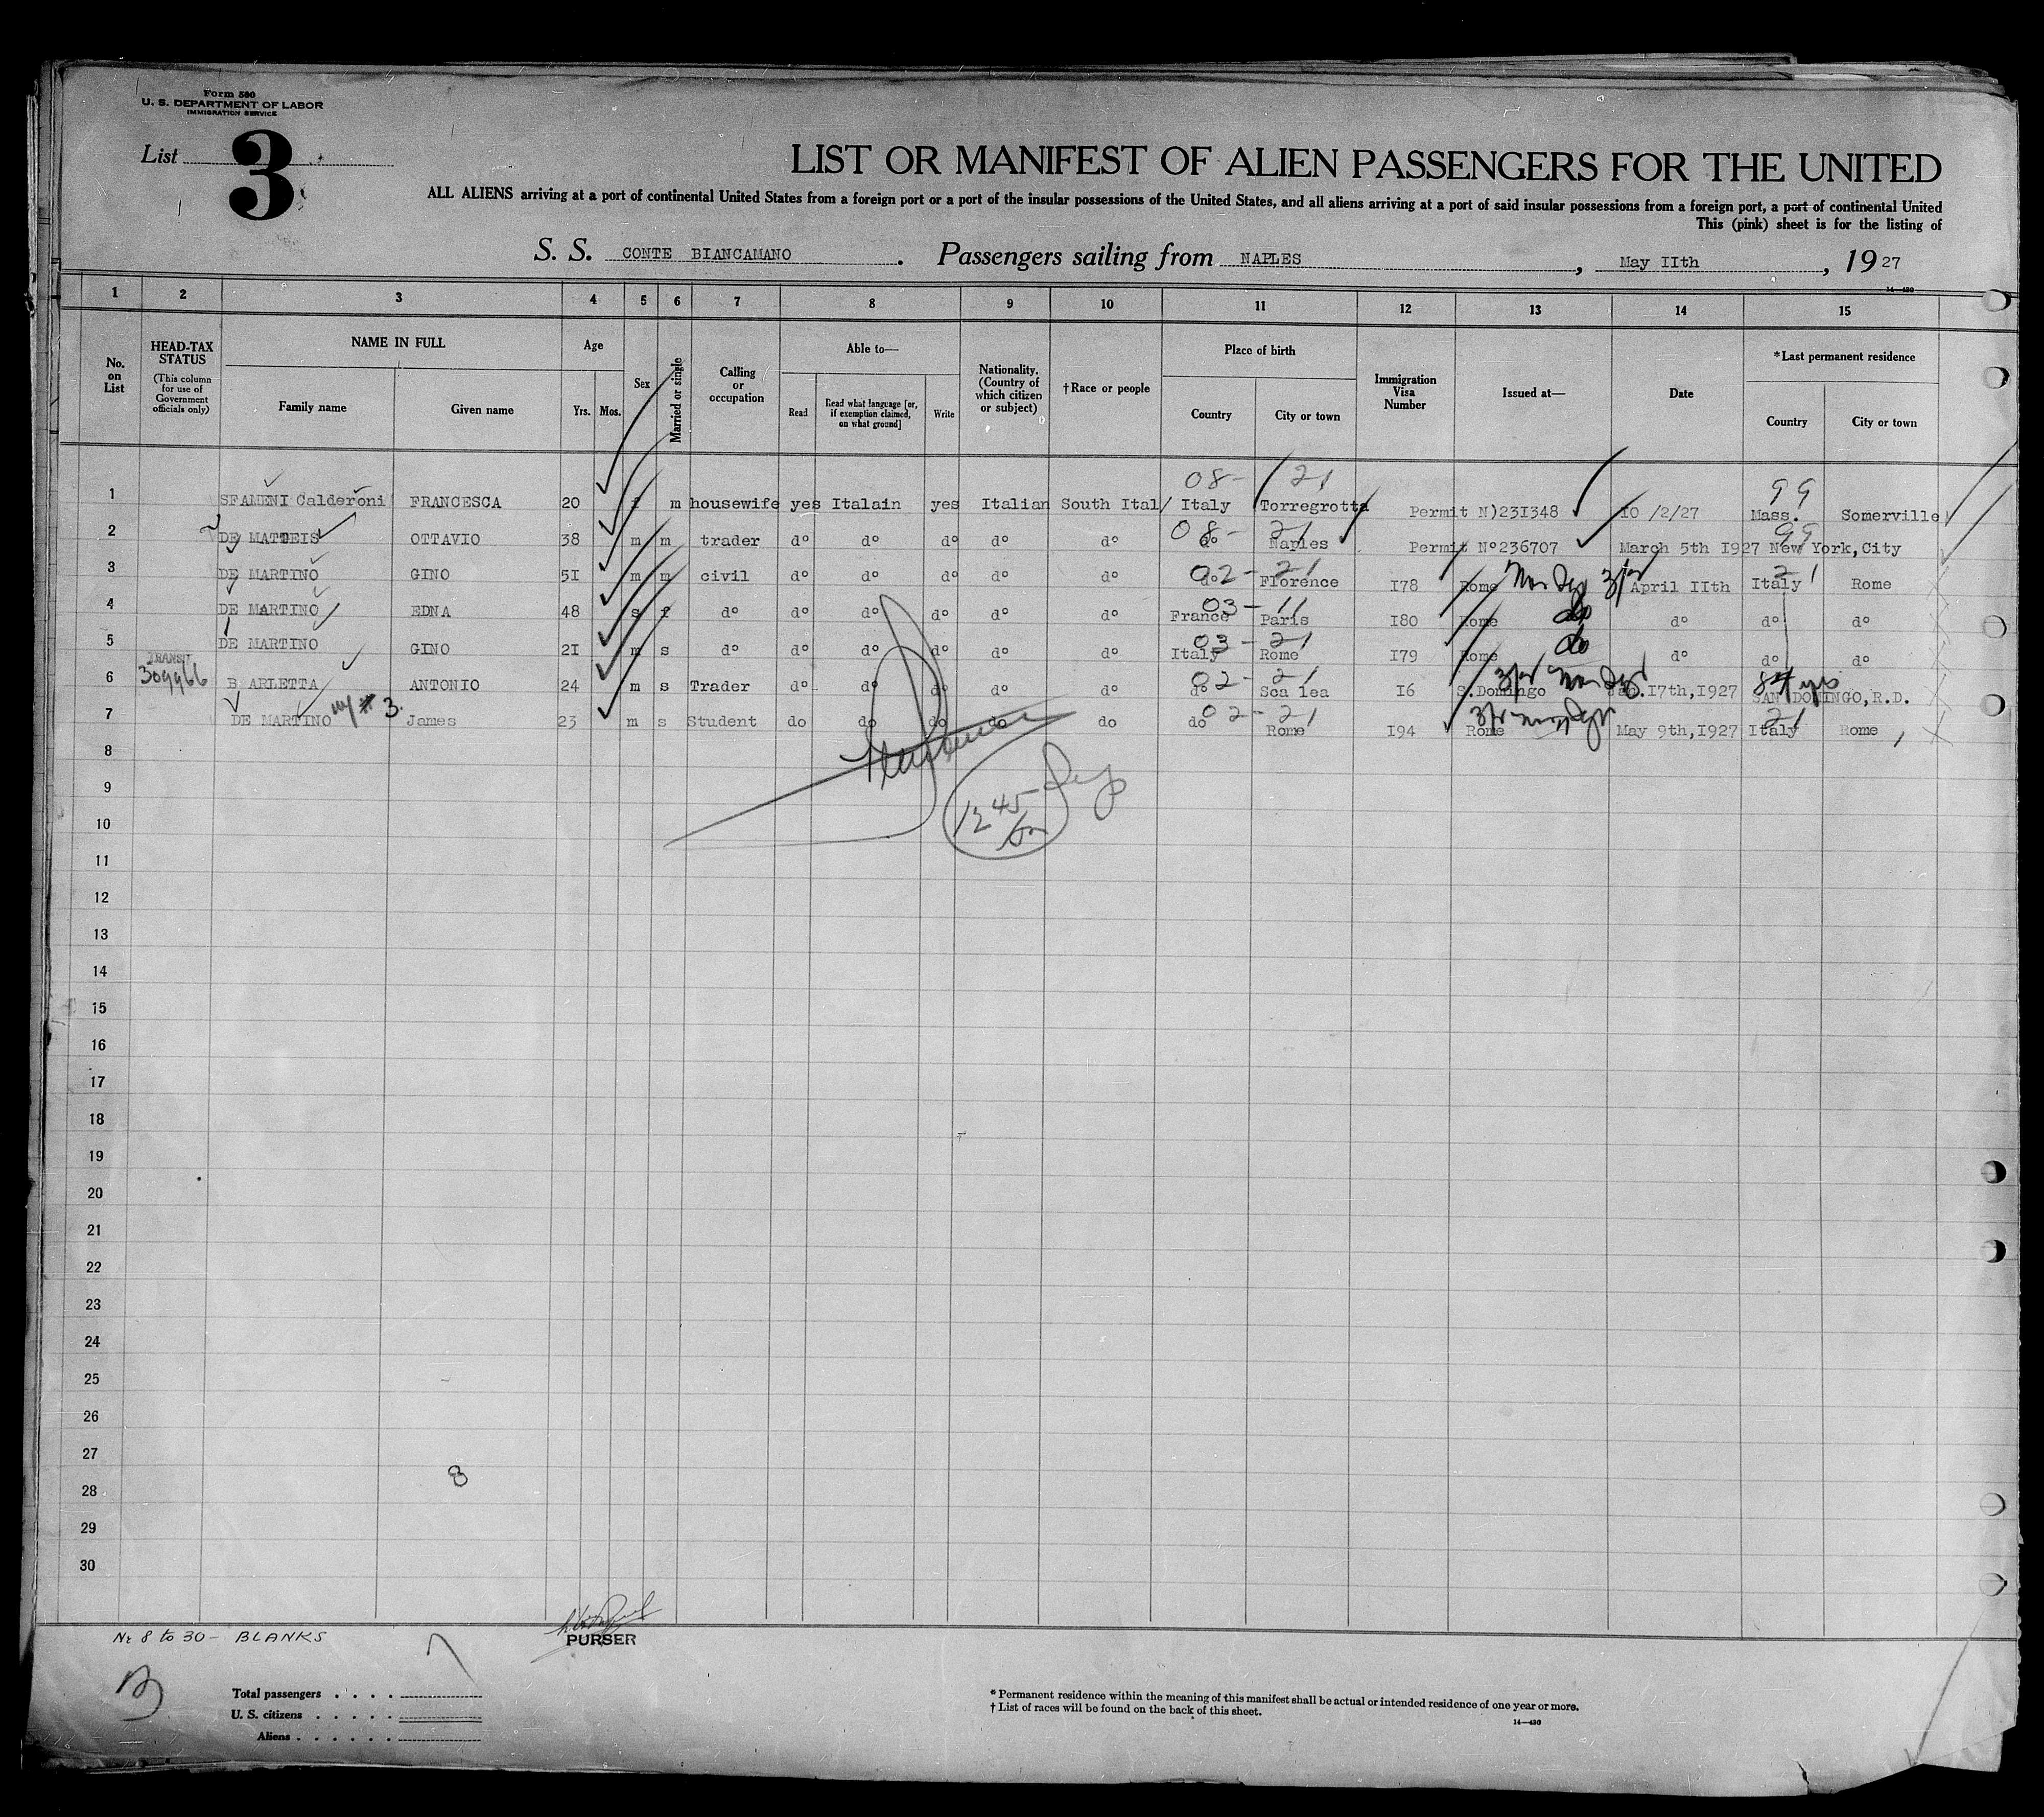 Form 500
U. S. DEPARTMENT OF LABOR
IMMIGRATION SERVICE
List 3
LIST OR MANIFEST OF ALIEN PASSENGERS FOR THE UNITED
ALL ALIENS arriving at a port of continental United States from a foreign port or a port of the insular possessions of the United States, and all aliens arriving at a port of said insular possessions from a foreign port, a port of continental United
This (pink) sheet is for the listing of
S. S. CONTE BIANCAMANO. Passengers sailing from NAPLES, May IIth, 1927
14—430
1 2 3 4 5 6 7 8 9 10 11 12 13 14 15
No. on List
HEAD-TAX STATUS
(This column for use of Government officials only)
NAME IN FULL
Family name Given name
Age
Yrs. Mos.
Sex
Married or single
Calling or occupation
Able to—
Read
Read what language [or, if exemption claimed, on what ground]
Write
Nationality. (Country of which citizen or subject)
†Race or people
Place of birth
Country City or town
Immigration Visa Number
Issued at—
Date
*Last permanent residence
Country City or town
08- 21 99
1 SFAMENI Calderoni FRANCESCA 20 f m housewife yes Italain yes Italian South Ital Italy Torregrotta Permit N)23I348 10 /2/27 Mass. Somerville
08- 21 99
2 DE MATTEIS OTTAVIO 38 m m trader do do do do do do Naples Permit No236707 March 5th I927 New York, City
02- 21 21
3 DE MARTINO GINO 5I m m civil do do do do do do Florence I78 Rome April IIth Italy Rome
03- 11 do
4 DE MARTINO EDNA 48 s f do do do do do do France Paris I80 Rome do do do
03- 21 do
5 DE MARTINO GINO 2I m s do do do do do do Italy Rome I79 Rome do do do
TRANSIT 309966 02- 21
6 B ARLETTA ANTONIO 24 m s Trader do do do do do do Sca lea I6 S.Domingo Jan.I7th,I927 SAN DOMINGO,R.D.
02- 21 21
7 DE MARTINO # 3. James 23 m s Student do do do do do do Rome I94 Rome May 9th,I927 Italy Rome
8
9
1245
10
11
12
13
14
15
16
17
18
19
20
21
22
23
24
25
26
27
8
28
29
30
PURSER
Nr 8 to 30 - BLANKS
Total passengers . . . .
U. S. citizens . . . . .
Aliens . . . . . .
* Permanent residence within the meaning of this manifest shall be actual or intended residence of one year or more.
† List of races will be found on the back of this sheet.
14—430